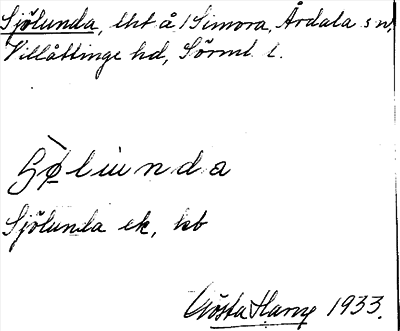 Sjölunda, lht å Simora, Årdala sn,
Villåttinge hd, Sörml. l.
Sjölunda ek, kb
Gösta Harnz 1933.